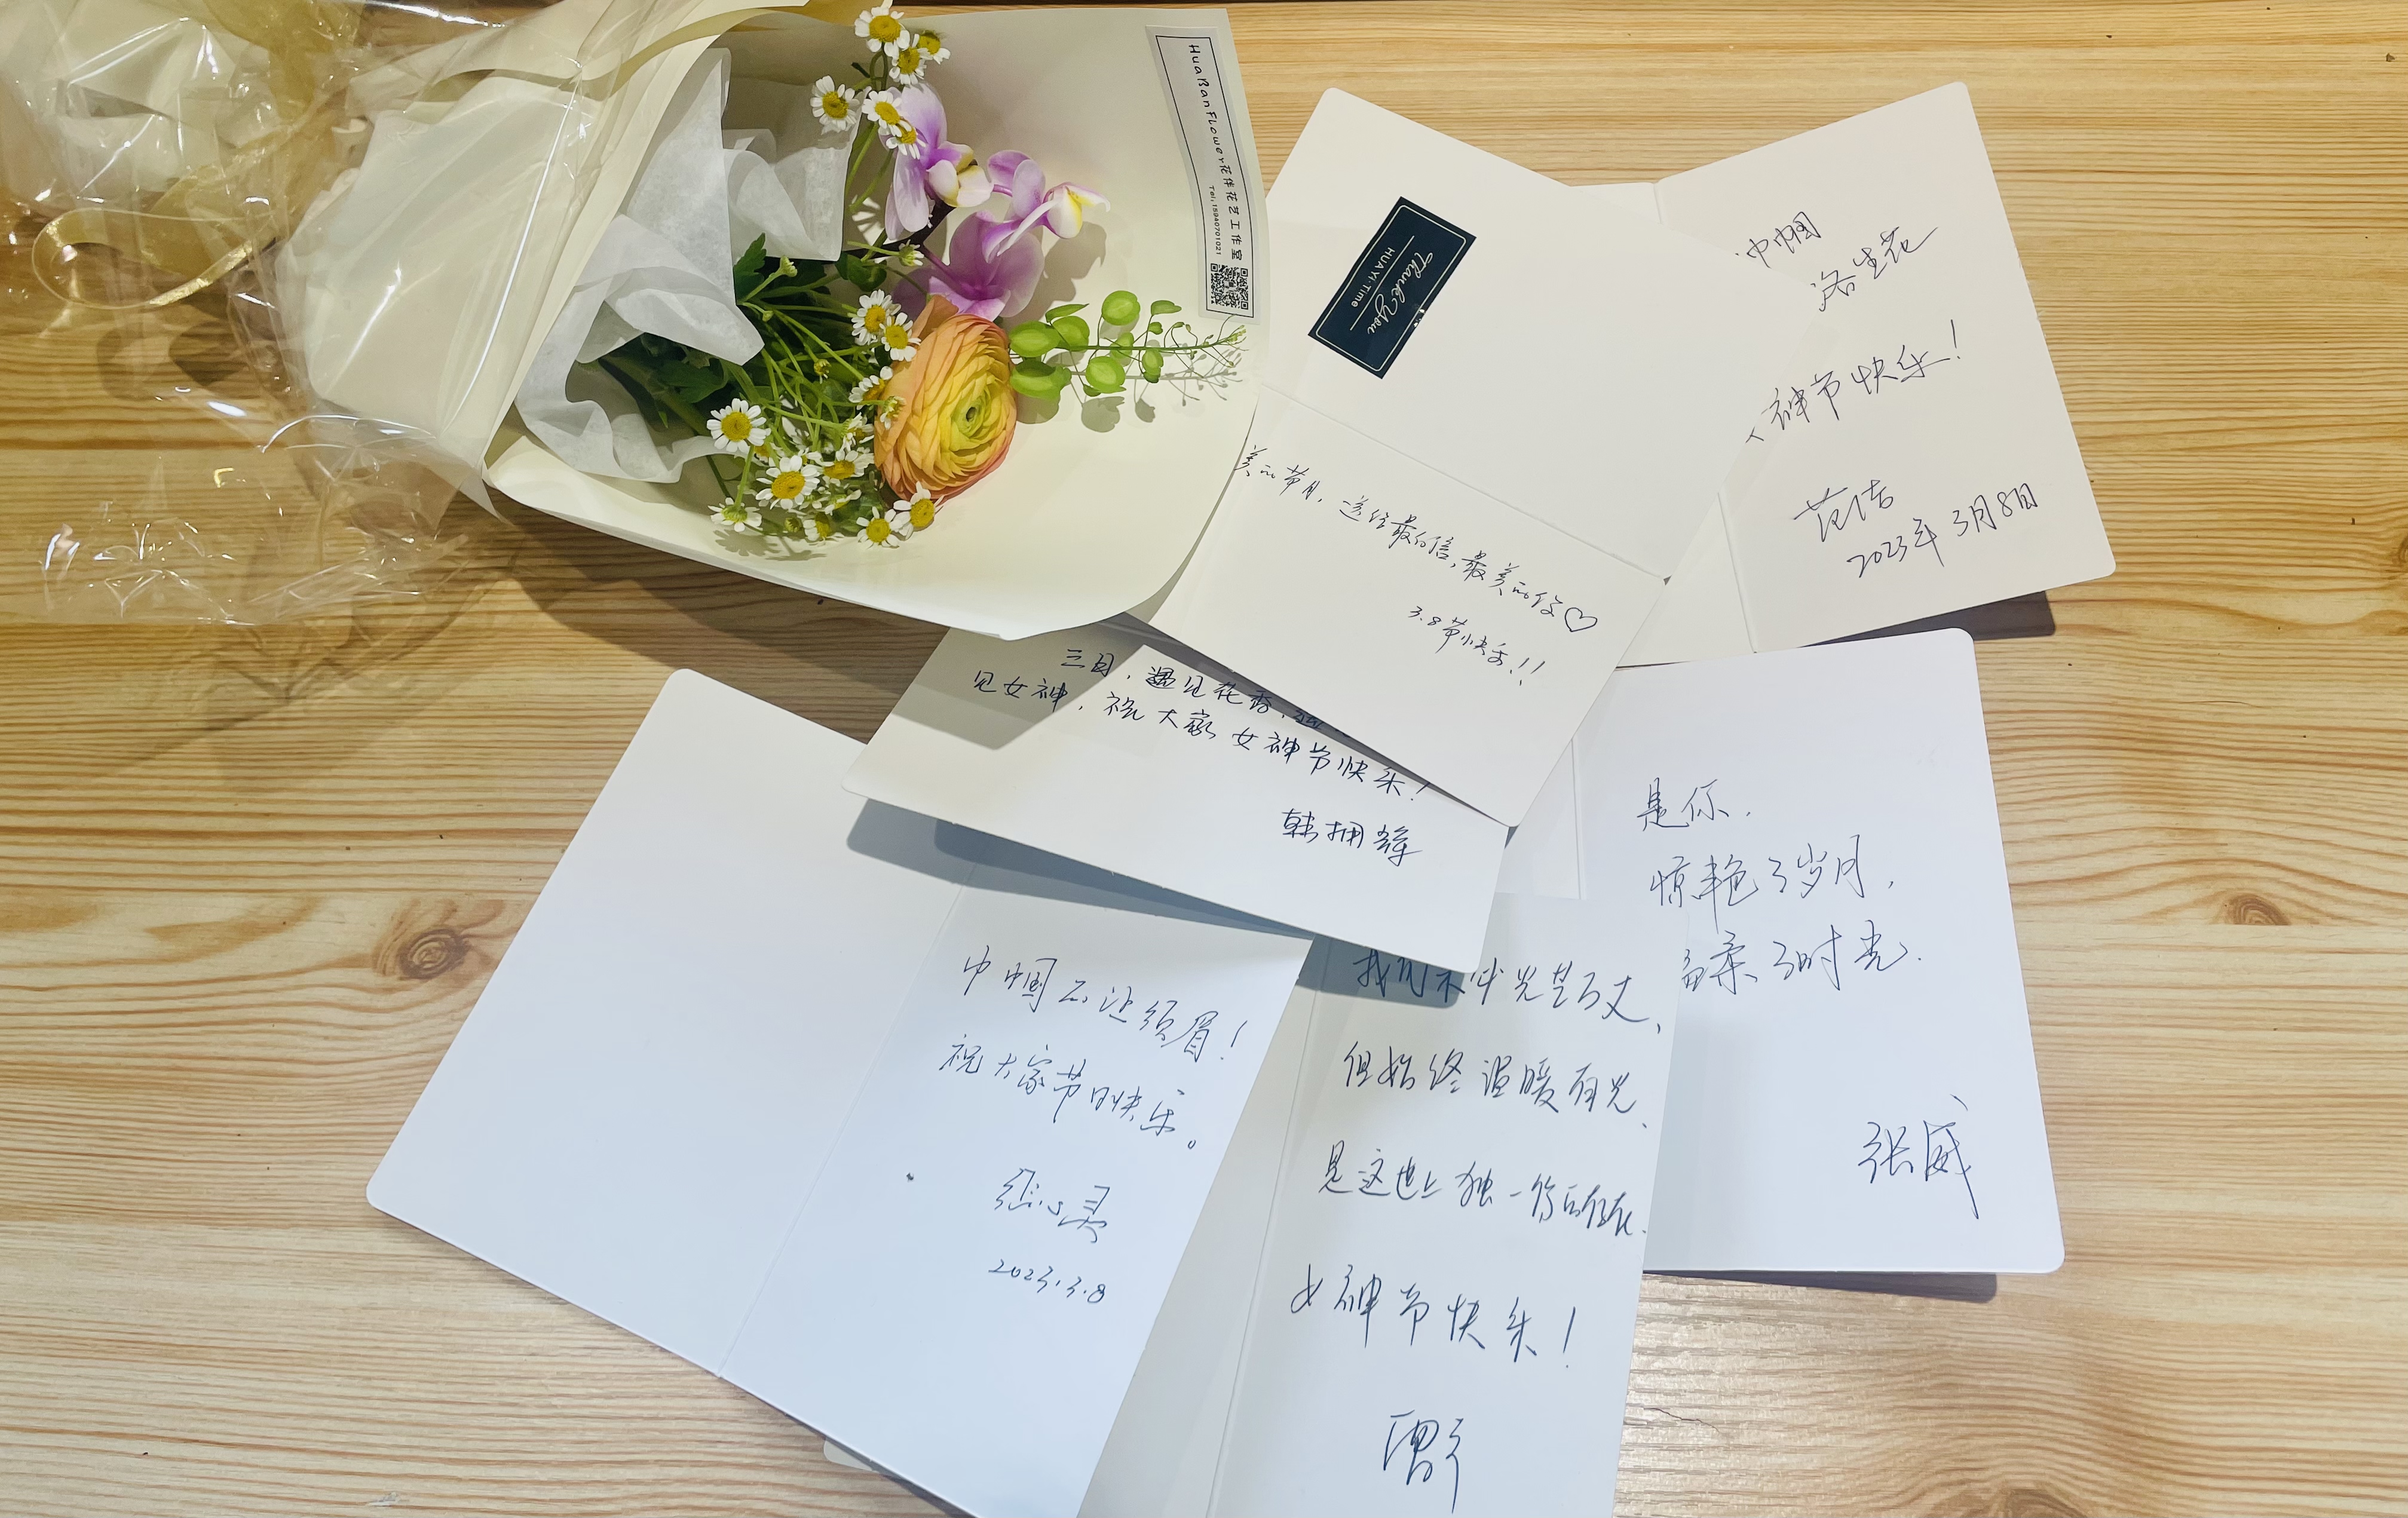 HuaBanFlower花伴花艺工作室
Tel:15940701021
Thank You
HUAYI·Time
巾帼
洛生花
神节快乐!
范洁
2023年3月8日
美的节日,送给最自信,最美的你♡
3.8节快乐!!
三月,遇见花香,
见女神,祝大家女神节快乐!
韩拥辉
是你,
惊艳了岁月,
柔了时光.
张威
巾帼不让须眉!
祝大家节日快乐。
2023.3.8
我们不畔光芒万丈,
但始终温暖有光,
是这世上独一份的存在.
女神节快乐!